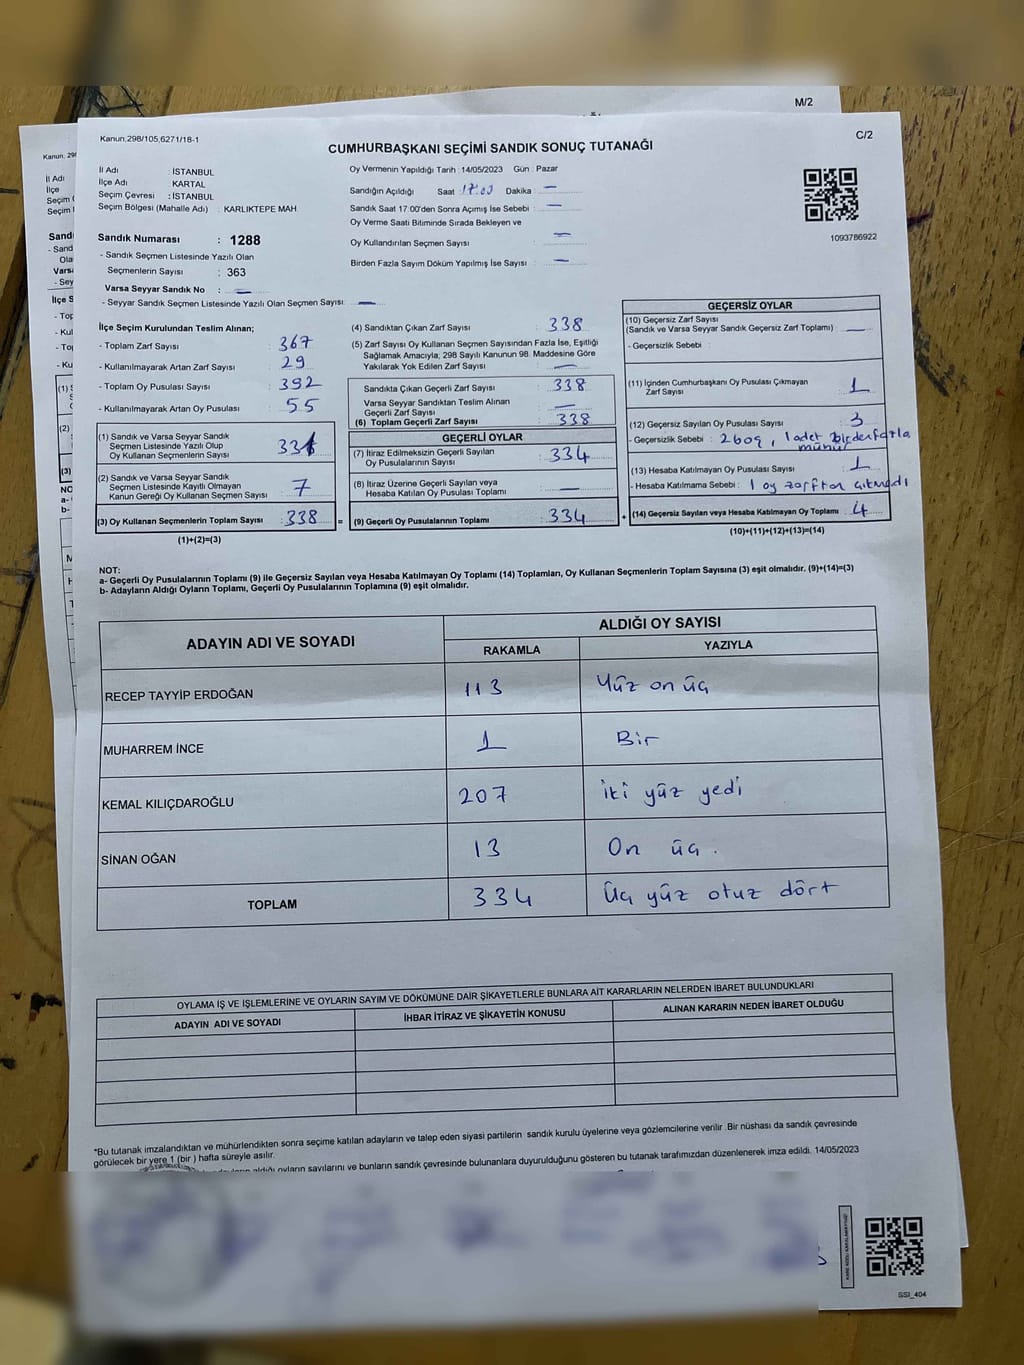 M/2
Kanun,298/105,6271/18-1
C/2
CUMHURBAŞKANI SEÇİMİ SANDIK SONUÇ TUTANAĞI
İl Adı : İSTANBUL
İlçe Adı : KARTAL
Seçim Çevresi : İSTANBUL
Seçim Bölgesi (Mahalle Adı) : KARLIKTEPE MAH.
Oy Vermenin Yapıldığı Tarih : 14/05/2023 Gün : Pazar
Sandığın Açıldığı Saat 17.00 Dakika —
Sandık Saat 17:00'den Sonra Açımış İse Sebebi : —
Oy Verme Saati Bitiminde Sırada Bekleyen ve
Oy Kullandırılan Seçmen Sayısı : —
Birden Fazla Sayım Döküm Yapılmış İse Sayısı : —
1093786922
Sandık Numarası : 1288
- Sandık Seçmen Listesinde Yazılı Olan
Seçmenlerin Sayısı : 363
Varsa Seyyar Sandık No : —
- Seyyar Sandık Seçmen Listesinde Yazılı Olan Seçmen Sayısı: —
İlçe Seçim Kurulundan Teslim Alınan;
- Toplam Zarf Sayısı : 367
- Kullanılmayarak Artan Zarf Sayısı : 29
- Toplam Oy Pusulası Sayısı : 392
- Kullanılmayarak Artan Oy Pusulası : 55
(1) Sandık ve Varsa Seyyar Sandık
Seçmen Listesinde Yazılı Olup
Oy Kullanan Seçmenlerin Sayısı : 331
(2) Sandık ve Varsa Seyyar Sandık
Seçmen Listesinde Kayıtlı Olmayan
Kanun Gereği Oy Kullanan Seçmen Sayısı : 7
(3) Oy Kullanan Seçmenlerin Toplam Sayısı : 338 =
(1)+(2)=(3)
(4) Sandıktan Çıkan Zarf Sayısı : 338
(5) Zarf Sayısı Oy Kullanan Seçmen Sayısından Fazla İse, Eşitliği
Sağlamak Amacıyla; 298 Sayılı Kanunun 98. Maddesine Göre
Yakılarak Yok Edilen Zarf Sayısı : —
Sandıkta Çıkan Geçerli Zarf Sayısı : 338
Varsa Seyyar Sandıktan Teslim Alınan
Geçerli Zarf Sayısı : —
(6) Toplam Geçerli Zarf Sayısı : 338
GEÇERLİ OYLAR
(7) İtiraz Edilmeksizin Geçerli Sayılan
Oy Pusulalarının Sayısı : 334
(8) İtiraz Üzerine Geçerli Sayılan veya
Hesaba Katılan Oy Pusulası Toplamı : —
(9) Geçerli Oy Pusulalarının Toplamı : 334 +
GEÇERSİZ OYLAR
(10) Geçersiz Zarf Sayısı
(Sandık ve Varsa Seyyar Sandık Geçersiz Zarf Toplamı) : —
- Geçersizlik Sebebi :
(11) İçinden Cumhurbaşkanı Oy Pusulası Çıkmayan
Zarf Sayısı : 1
(12) Geçersiz Sayılan Oy Pusulası Sayısı : 3
- Geçersizlik Sebebi : 2 boş, 1 adet birden fazla
mühür
(13) Hesaba Katılmayan Oy Pusulası Sayısı : 1
- Hesaba Katılmama Sebebi : 1 oy zarftan çıkmadı
(14) Geçersiz Sayılan veya Hesaba Katılmayan Oy Toplamı : 4
(10)+(11)+(12)+(13)=(14)
NOT:
a- Geçerli Oy Pusulalarının Toplamı (9) ile Geçersiz Sayılan veya Hesaba Katılmayan Oy Toplamı (14) Toplamları, Oy Kullanan Seçmenlerin Toplam Sayısına (3) eşit olmalıdır. (9)+(14)=(3)
b- Adayların Aldığı Oyların Toplamı, Geçerli Oy Pusulalarının Toplamına (9) eşit olmalıdır.
ADAYIN ADI VE SOYADI ALDIĞI OY SAYISI
RAKAMLA YAZIYLA
RECEP TAYYİP ERDOĞAN 113 Yüz on üç
MUHARREM İNCE 1 Bir
KEMAL KILIÇDAROĞLU 207 iki yüz yedi
SİNAN OĞAN 13 On üç.
TOPLAM 334 Üç yüz otuz dört
OYLAMA İŞ VE İŞLEMLERİNE VE OYLARIN SAYIM VE DÖKÜMÜNE DAİR ŞİKAYETLERLE BUNLARA AİT KARARLARIN NELERDEN İBARET BULUNDUKLARI
ADAYIN ADI VE SOYADI İHBAR İTİRAZ VE ŞİKAYETİN KONUSU ALINAN KARARIN NEDEN İBARET OLDUĞU
*Bu tutanak imzalandıktan ve mühürlendikten sonra seçime katılan adayların ve talep eden siyasi partilerin sandık kurulu üyelerine veya gözlemcilerine verilir. Bir nüshası da sandık çevresinde
görülecek bir yere 1 (bir ) hafta süreyle asılır.
aldığı oyların sayılarını ve bunların sandık çevresinde bulunanlara duyurulduğunu gösteren bu tutanak tarafımızdan düzenlenerek imza edildi. 14/05/2023
SSI_404